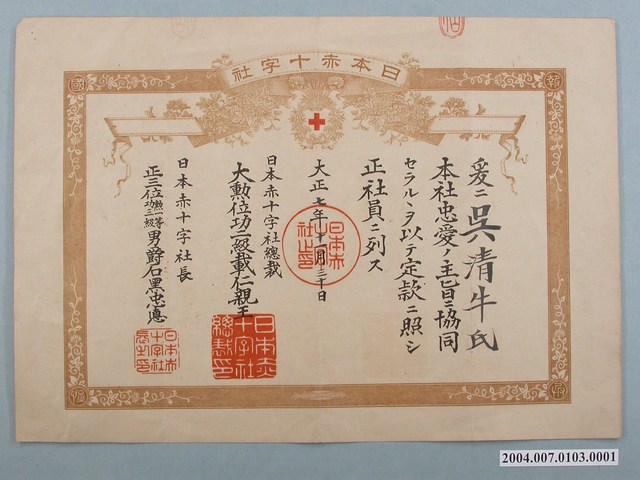 日本赤十字社
爰ニ吳清牛氏
本社忠愛ノ主旨ニ協同
セラルヽヲ以テ定款ニ照シ
正社員ニ列ス
大正七年十一月三十日
日本赤十字社總裁
大勲位功二級載仁親王
日本赤十字社長
正三位勲一等功三級男爵石黒忠悳
日本赤十字社總裁印
日本赤十字社長之印
日本赤十字社之印
報
國
恤
2004.007.0103.0001